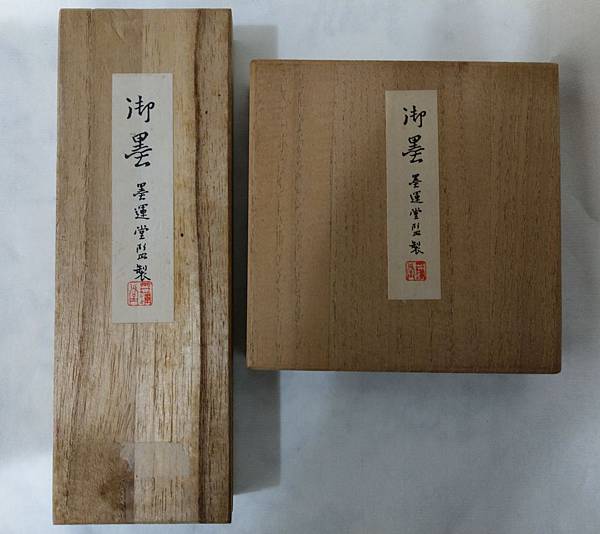 御墨 墨運堂監製
御墨 墨運堂監製